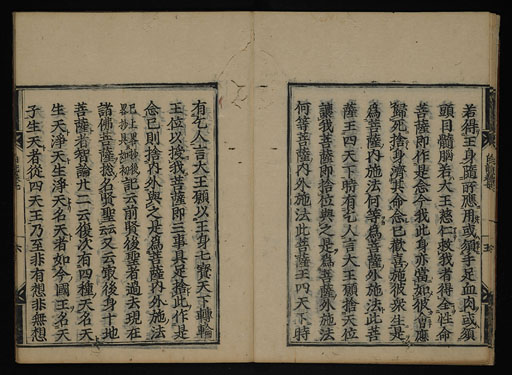 若得王身隨所應用或須手足血肉或須
頭目髓腦若大王慈仁救我者得全性命
菩薩即作是念今我此身亦當如彼會應
歸死捨身濟其命念已歡喜施彼衆生是
爲菩薩内施法何等爲菩薩内外施法此菩
薩王四天下時有乞人言大王願捨天位
讓我菩薩即捨位與之是爲菩薩外施法
何等菩薩内外施法此菩薩王四天下時
有乞人言大王願以王身七寶天下轉輪
王位以授我菩薩即三事具足捨此作是
念已則捨内外與之是爲菩薩内外施法
記云前賢後聖者過去現在
諸佛菩薩揔名賢聖云又云最後身十地
菩薩若智論廿二云復次有四種天名天
生天淨天生淨天名天者如今國王名天
子生天者從四天王乃至非有想非無想
六